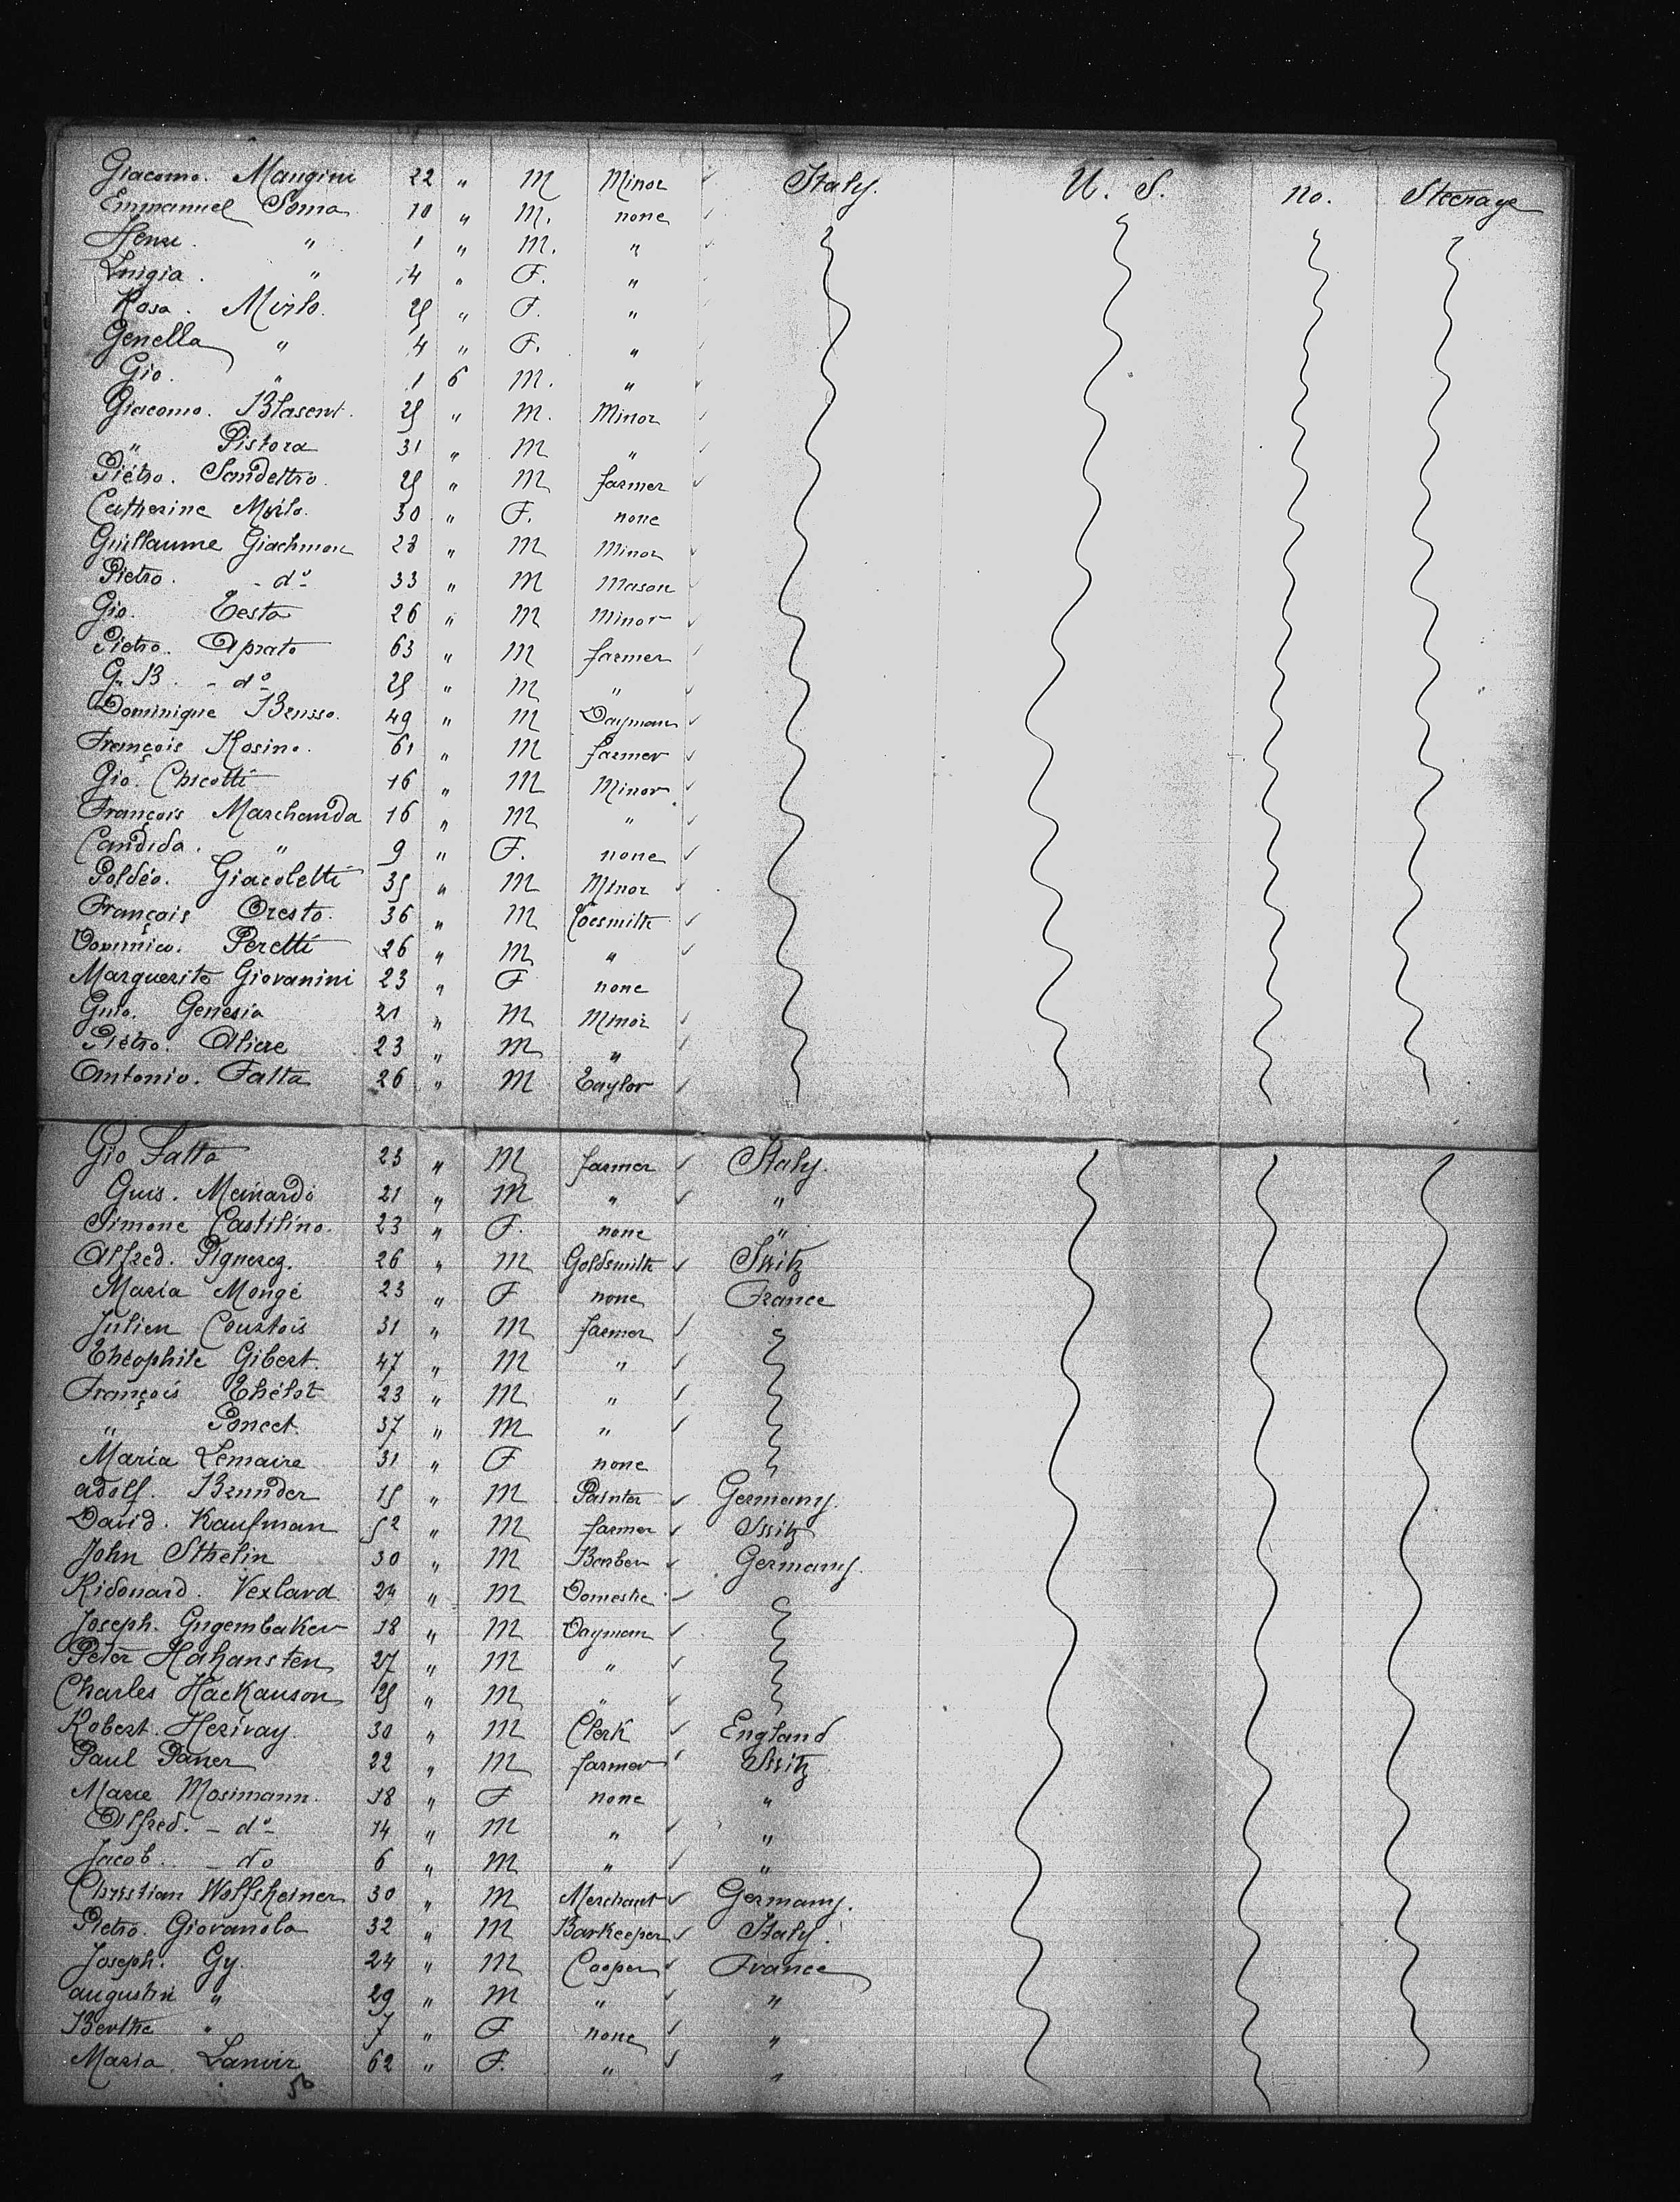 Giacomo. Mangini 22 " M Minor ✓ Italy. U. S. no. Steerage
Emmanuel Soma 10 " M. none ✓
Henri. " 1 " M. " ✓
Luigia. " 4 " F. "
Rosa. Mirlo. 25 " F. "
Genella " 4 " F. " ✓
Gio. " 1 6 M. " ✓
Giacomo. Blasent. 25 " M. Minor ✓
" Pistora 31 " M " ✓
Piétro. Sandettro. 25 " M farmer ✓
Catherine Mirlo. 30 " F. none
Guillaume Giachmon 28 " M Minor ✓
Pietro. - do - 33 " M Mason ✓
Gio. Testa 26 " M Minor ✓
Pietro. Aprato 63 " M farmer ✓
G. B. - do - 25 " M " ✓
Dominique Bensso. 49 " M Dayman ✓
François Rosino. 61 " M farmer ✓
Gio. Chicotti 16 " M Minor ✓
François Marchanda 16 " M " ✓
Candida. " 9 " F. none ✓
Poldéo. Giacoletti 35 " M Minor ✓
Français Oresto. 36 " M ✓
Dominico. Peretti 26 " M " ✓
Marguerite Giovanini 23 " F none
Genesia 21 " M Minor ✓
Piétro. Aliere 23 " M " ✓
Antonio. Falta 26 " M Taylor ✓
Gio Falta 23 " M farmer ✓ Italy.
Guis. Meinardi 21 " M " ✓ "
Simone Castilino. 23 " F. none "
Alfred. Pignerez. 26 " M Goldsmith ✓ Switz
Maria Mongé 23 " F none France
Julien Courtois 31 " M farmer ✓
Théophile Gibert. 47 " M " ✓
François Thélot 23 " M " ✓
" Poncet. 37 " M " ✓
Maria Lemaire 31 " F none
adolf. Brunder 15 " M Painter ✓ Germany.
David. Kaufman 52 " M farmer ✓ Switz
John Sthelin 30 " M Barber ✓ Germany.
Ridouard. Vexlard 24 " M Domestic ✓
Joseph. Gugembaker 18 " M Dayman ✓
Peter Hahansten 27 " M " ✓
Charles Hackanson 25 " M " ✓
Robert. Herivay. 30 " M Clerk ✓ England
Paul Paner 22 " M farmer ✓ Switz
Marie Mosimann. 18 " F none "
Alfred. - do - 14 " M " ✓ "
Jacob. - do 6 " M " ✓ "
Christian Wolfsheiner 30 " M Merchant ✓ Germany.
Pietro. Giovanola 32 " M Barkeeper ✓ Italy.
Joseph. Gy. 24 " M Cooper ✓ France
augustin " 29 " M " ✓ "
Berthe " 7 " F none ✓ "
Maria. Lanvir 62 " F. " ✓ "
56